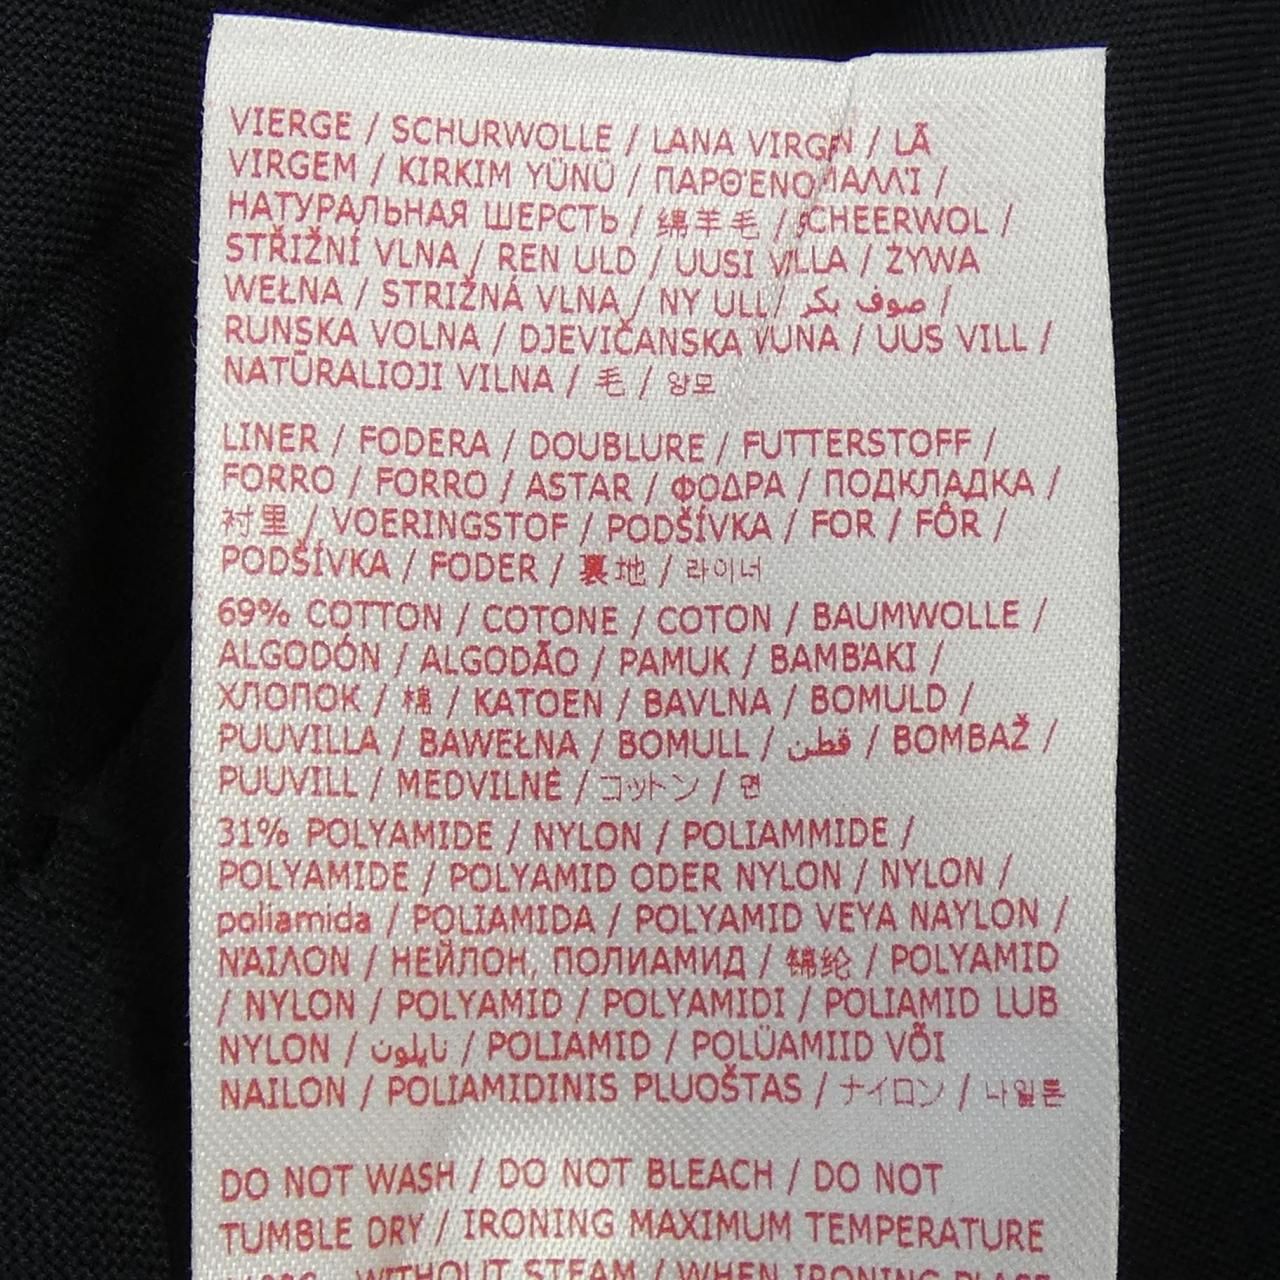 VIERGE / SCHURWOLLE / LANA VIRGEN / LÃ
VIRGEM / KIRKIM YÜNÜ / ΠΑΡΘΈΝΟ ΜΑΛΛΊ /
НАТУРАЛЬНАЯ ШЕРСТЬ / 绵羊毛 / SCHEERWOL /
STŘIŽNÍ VLNA / REN ULD / UUSI VILLA / ŻYWA
WEŁNA / STRIŽNÁ VLNA / NY ULL / صوف بكر /
RUNSKA VOLNA / DJEVIČANSKA VUNA / UUS VILL /
NATŪRALIOJI VILNA / 毛 / 양모
LINER / FODERA / DOUBLURE / FUTTERSTOFF /
FORRO / FORRO / ASTAR / ΦΟΔΡΑ / ПОДКЛАДКА /
衬里 / VOERINGSTOF / PODŠÍVKA / FOR / FÔR /
PODŠÍVKA / FODER / 裏地 / 라이너
69% COTTON / COTONE / COTON / BAUMWOLLE /
ALGODÓN / ALGODÃO / PAMUK / ΒΑΜΒΆΚΙ /
ХЛОПОК / 棉 / KATOEN / BAVLNA / BOMULD /
PUUVILLA / BAWEŁNA / BOMULL / قطن / BOMBAŽ /
PUUVILL / MEDVILNĖ / コットン / 면
31% POLYAMIDE / NYLON / POLIAMMIDE /
POLYAMIDE / POLYAMID ODER NYLON / NYLON /
poliamida / POLIAMIDA / POLYAMID VEYA NAYLON /
ΝΆΙΛΟΝ / НЕЙЛОН, ПОЛИАМИД / 锦纶 / POLYAMID
/ NYLON / POLYAMID / POLYAMIDI / POLIAMID LUB
NYLON / نايلون / POLIAMID / POLÜAMIID VÕI
NAILON / POLIAMIDINIS PLUOŠTAS / ナイロン / 나일론
DO NOT WASH / DO NOT BLEACH / DO NOT
TUMBLE DRY / IRONING MAXIMUM TEMPERATURE
WITHOUT STEAM / WHEN IRONING PLACE